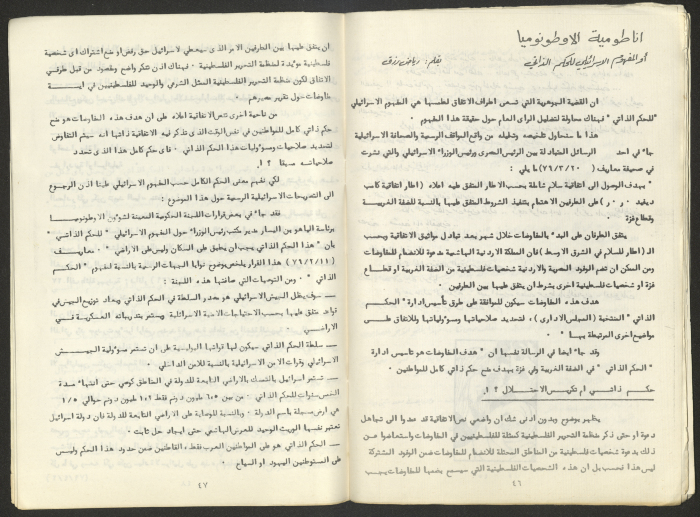 اناطومية للاوطونوميا
أو المفهوم الاسرائيلي للحكم الذاتي      بقلم: رياض رزق
ان القضية الجوهرية التي تسعى اطراف الاتفاق لطمسها هي المفهوم الاسرائيلي
"للحكم الذاتي" فهناك محاولة لتضليل الرأى العام حول حقيقة هذا المفهوم .
هذا ما سنحاول تلخيصه وتحليله من واقع المواقف الرسمية والصحافة الاسرائيلية
جاء في احد الرسائل المتبادلة بين الرئيس المصرى ورئيس الوزراء الاسرائيلي والتي نشرت
في صحيفة معاريف ( ٧٩/٣/٢٠ ) ما يلي :
" بهدف الوصول الى اتفاقية سلام شاملة بحسب الاطار المتفق عليه اعلاه ( اطار اتفاقية كامب
ديفيد . ر . ر ) على الطرفين الاهتمام بتنفيذ الشروط المتفق عليها بما يتعلق بالنسبة للضفة الغربية
وقطاع غزة .
يتفق الطرفان على البدء بالمفاوضات خلال شهر بعد تبادل مواثيق الاتفاقية وبحسب
ال ( اطار للسلام في الشرق الاوسط ) فان المملكة الاردنية الهاشمية مدعوة للانضمام للمفاوضات
ومن الممكن ان تضم الوفود المصرية والاردنية شخصيات فلسطينية من الضفة الغربية او قطاع
غزة او شخصيات فلسطينية اخرى بشرط ان يتفق عليها بين الطرفين .
هدف هذه المفاوضات سيكون الموافقة على طرق تأسيس ادارة " الحكم
الذاتي " المنتخبة ( المجلس الادارى ) ، لتحديد صلاحياتها ومسؤولياتها وللاتفاق على
مواضيع اخرى المرتبطة بها " .
وقد جاء ايضا في الرسالة نفسها ان " هدف المفاوضات هو تأسيس ادارة
" الحكم الذاتي " في الضفة الغربية وفي غزة بهدف منح حكم ذاتي كامل للمواطنين .
حكم ذاتي ام تكريس الاحتلال ؟ !.
يظهر بوضوح وبدون ادنى شك ان واضعي نص الاتفاقية قد عمدوا الى تجاهل
دعوة او حتى ذكر منظمة التحرير الفلسطينية كممثلة للفلسطينيين في المفاوضات واستعاضوا عن
ذلك بدعوة شخصيات فلسطينية من المناطق المحتلة للانضمام للمفاوضات ضمن الوفود المشتركة
ليس هذا فحسب بل ان هذه الشخصيات الفلسطينية التي سيسمح بضمها للمفاوضات يجب
٤٦
ان يتفق عليها بين الطرفين الامر الذى سيعطي لاسرائيل حق رفض او منع اشتراك اى شخصية
فلسطينية مؤيدة لمنظمة التحرير الفلسطينية . فهناك اذن تنكر واضح ومقصود من قبل طرفي
الاتفاق لكون منظمة التحرير الفلسطينية الممثل الشرعي والوحيد للفلسطينيين في اية
مفاوضات حول تقرير مصيرهم .
من ناحية اخرى تنص الاتفاقية اعلاه على ان هدف هذه المفاوضات هو منح
حكم ذاتي كامل للمواطنين في نفس الوقت الذى تذكر فيه الاتفاقية ذاتها انه سيتم التفاوض
لتحديد صلاحيات ومسؤوليات هذا الحكم الذاتي . فاى حكم كامل هذا الذى تحدد
صلاحياته مسبقا ؟ !.
لكي نفهم معنى الحكم الكامل حسب المفهوم الاسرائيلي علينا اذن الرجوع
الى التصريحات الاسرائيلية الرسمية حول هذا الموضوع :
فقد جاء في بعض قرارات اللجنة الحكومية المعينة لشؤون الاوطونوميا
برئاسة الياهو بن اليسار مدير مكتب رئيس الوزراء حول المفهوم الاسرائيلي " للحكم الذاتي "
بان " هذا الحكم الذاتي يجب ان يطبق على السكان وليس على الاراضي " . معاريف
( ٧٩/٢/١١ ) هذا القرار يلخص بوضوح نوايا الجهات الرسمية بالنسبة لمفهوم " الحكم
الذاتي " . ومن التوصيات التي صاغتها هذه اللجنة :
ــ سوف يظل الجيش الاسرائيلي هو مصدر السلطة في الحكم الذاتي ويعاد توزيع الجيش في
قواعد متفق عليها بحسب الاحتياجات الامنية الاسرائيلية وستستمر تدريباته العسكرية في
الاراضي .
ــ سلطة الحكم الذاتي سيكون لها قواتها البوليسية على ان تستمر مسؤولية الجيش
الاسرائيلي وقوات الامن الاسرائيلية بالنسبة للامن الداخلي .
ــ تستمر اسرائيل بالتمسك بالاراضي التابعة للدولة في المناطق كوصي حتى انتهاء مدة
الخمس سنوات للحكم الذاتي . من بين ٥ر٥ مليون دونم فقط ١ر٢ مليون دونم حوالي ١/٥
هي ارض مسجلة باسم الدولة . وبالنسبة للوصاية على الاراضي التابعة للدولة فان دولة اسرائيل
تعتبر نفسها الوريث الوحيد للعرش الهاشمي حتى ايجاد حل ثابت .
ــ الحكم الذاتي هو على المواطنين العرب فقط ، القاطنين ضمن حدود هذا الحكم وليس
على المستوطنين اليهود او السياح .
٤٧